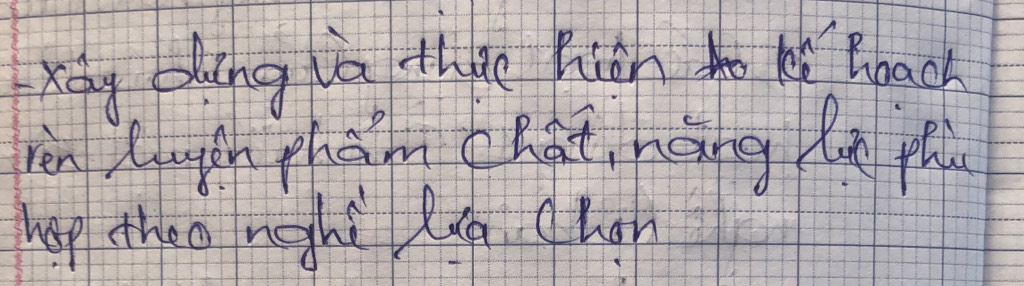 - Xây dựng và thực hiện kế hoạch
rèn luyện phẩm chất, năng lực phù
hợp theo nghề lựa chọn